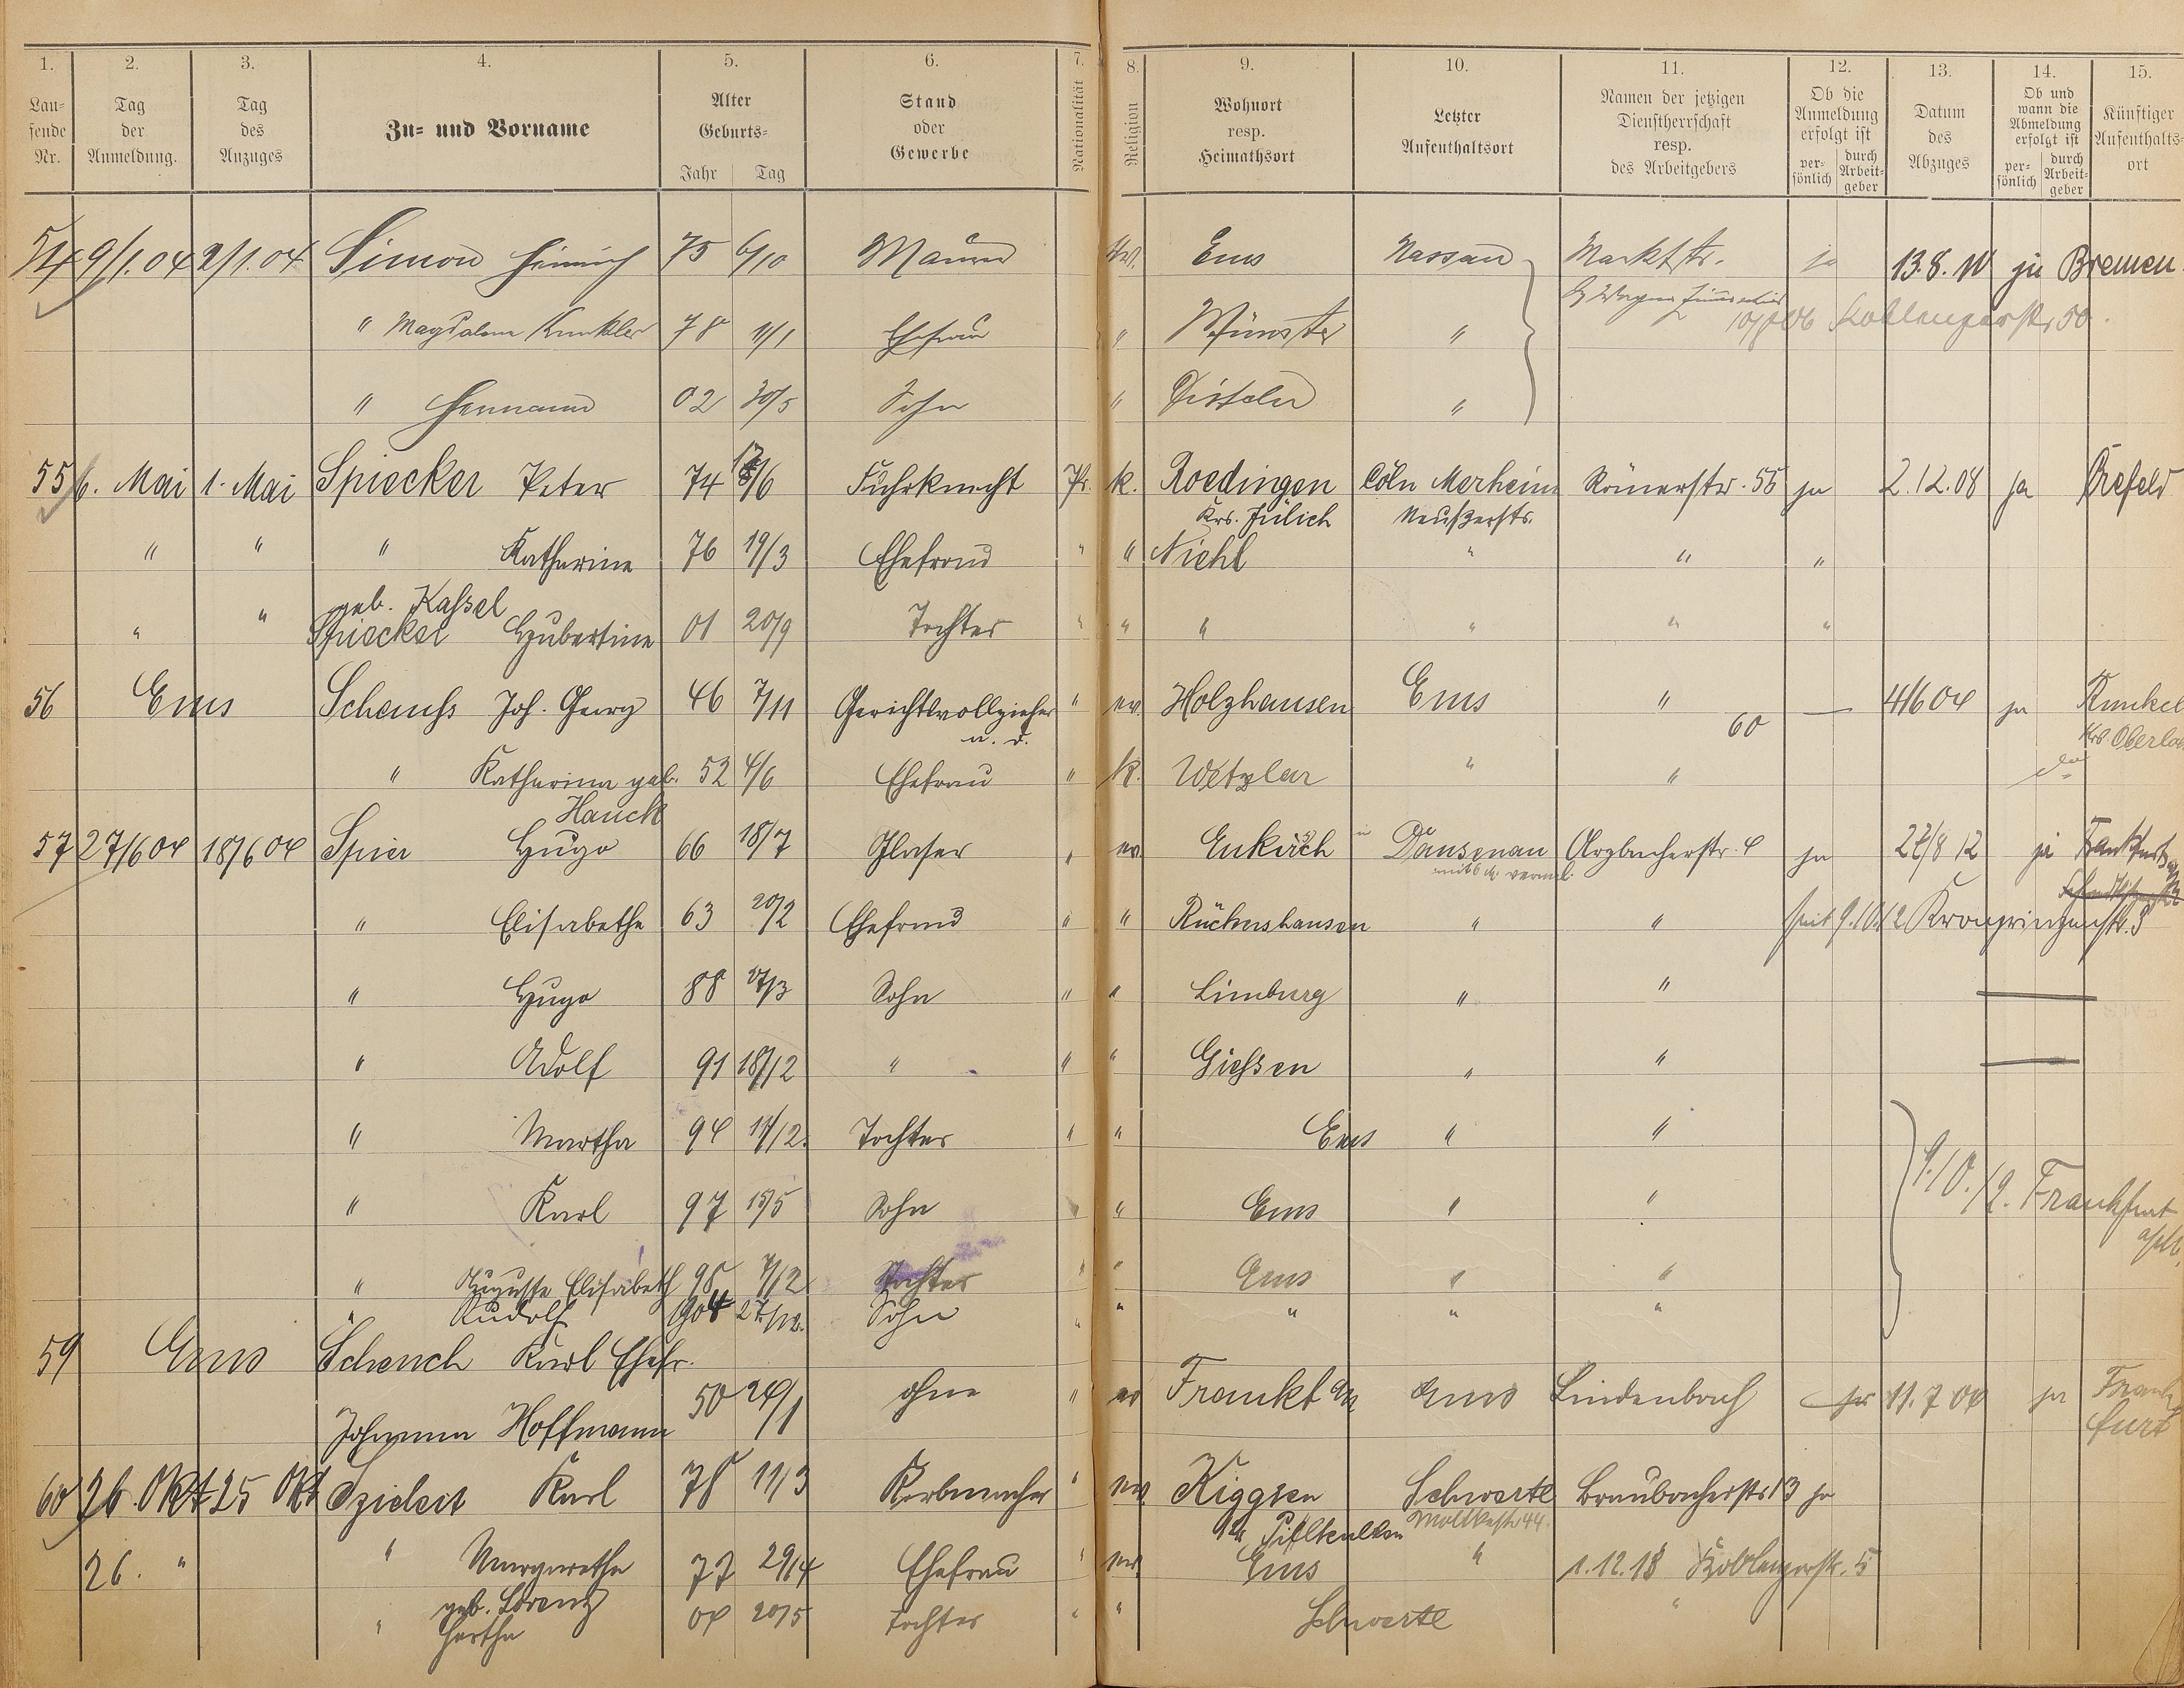 1. 2. 3. 4. 5. 6. 7. 8. 9. 10. 11. 12. 13. 14. 15.
Laufende Nr. | Tag der Anmeldung. | Tag des Anzuges | Zu- und Vorname | Alter Geburts- Jahr Tag | Stand oder Gewerbe | Nationalität | Religion | Wohnort resp. Heimathsort | Letzter Aufenthaltsort | Namen der jetzigen Dienstherrschaft resp. des Arbeitgebers | Ob die Anmeldung erfolgt ist persönlich durch Arbeitgeber | Datum des Abzuges | Ob und wann die Abmeldung erfolgt ist persönlich durch Arbeitgeber | Künftiger Aufenthaltsort
54 9/1.04 2/1.04 Simon Heinrich 75 6/10 Maurer ev. Ems Nassau Marktstr. ja 13.8.10 ja Bremen
" Magdalena Kunkler 78 11/1 Ehefrau " Münster " Koblenzerstr 50.
" Hermann 02 30/5 Sohn " "
55 6. Mai 1. Mai Spiecker Peter 74 /6 Fuhrknecht Pr. k. Roedingen Cöln Merheim Römerstr. 55 ja 2.12.08 ja Crefeld
Krs. Jülich Neußerstr.
" " " Katharina 76 19/3 Ehefrau " " Niehl " " "
geb. Kassel
" " Spiecker Hubertine 01 20/9 Tochter " " " " " "
56 Ems Schauss Joh. Georg 46 7/11 Gerichtsvollzieher " ev. Holzhausen Ems " — 4/6 04 ja Runkel
a. D. 60 Krs. Oberlah
" Katharina geb. 52 4/6 Ehefrau " k. Wetzlar " " do
Hauck
57 27/6 04 18/6 04 Spier Hugo 66 18/7 Glaser " ev. Enkirch in Dausenau Arzbacherstr. 4 ja 27/8 12 ja Frankfurt
" Elisabethe 63 20/2 Ehefrau " " Rückershausen " " seit 9.10.12 Kronprinzenstr. 3
" Hugo 88 /3 Sohn " " Limburg " " —
" Adolf 91 18/12 " " " Giessen " " —
" Martha 94 11/12. Tochter " " Ems " "
9./10./12. Frankfurt a/M.
" Karl 97 15/5 Sohn " " Ems " "
" Auguste Elisabeth 98 7/12 Tochter " " Ems " "
" Rudolf 1904 27/12. Sohn " " " " "
59 Ems Schench Karl Ehefr.
Johanna Hoffmann 50 24/1 ohne " ev Frankf a/M Ems Lindenbach ja 11.7 04 ja Frankfurt
60 26. Okt 25 Okt Szieleit Karl 78 11/3 Korbmacher " ev. Kiggsen Schwerte Braubacherstr 13 ja
Pillkallen Moltkestr 44.
26. " " Margarethe 77 29/4 Ehefrau " ev. Ems " 1.12.18 Koblenzerstr. 5
geb. Lorenz
" Hertha 04 20/5 Tochter " " Schwerte "